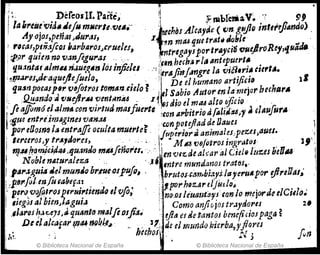 Defcos II. Parte,
la breue vida de su muerte vea.
Ay ojos, peñas, duras,
rocas, peñascos barbaros, crueles,
por quien no van seguras
quantas almas nauegan los infieles
mares, de aqueste suelo,
quan pocas por vosotros toman cielo?
Quando à vuestras ventanas
se assomò el alma con virtud mas fuerte
que entre imagines vanas
por ellas no la entrasse oculta muerte?
terceros, y traydores,
mas homicidas, quando mas señores.
Noble naturaleza
para guia del mundo breue os puso,
por sol en su cabeça:
pero vosotros peruirtiendo el vso,
ciegos al bien, la guia
claros hazeys, à quanto mal se os fia.
De el alcaçar mas noble,
hechos
Emblema V.
99
hechos Alcayde (vn gesto interessando)
en mas que trato doble
entregays por trayciò vuestro Rey, quãdo
con hecha la antepuerta
era fin sangre la victoria cierta.
De el humano artificio
el Sabio Autor en la mejor hechura
os dio el mas alto oficio
con arbitrio de salidas, y à clausura
con potestad de llaues
superior à animales, pezes, aues.
Mas vosotros ingratos
en vez de alcar al Cielo luzes bellas
entre mundanos tratos,
brutos cambiays la yerua por estrellas,
y por hozar el suelo,
no os leuantays con lo mejor de el Cielo:
Como ansi ojos traydores
esta es de tantos beneficios paga?
de el mundo hierba, y flores
N 3
son
© Biblioteca Nacional de España
© Biblioteca Nacional de España